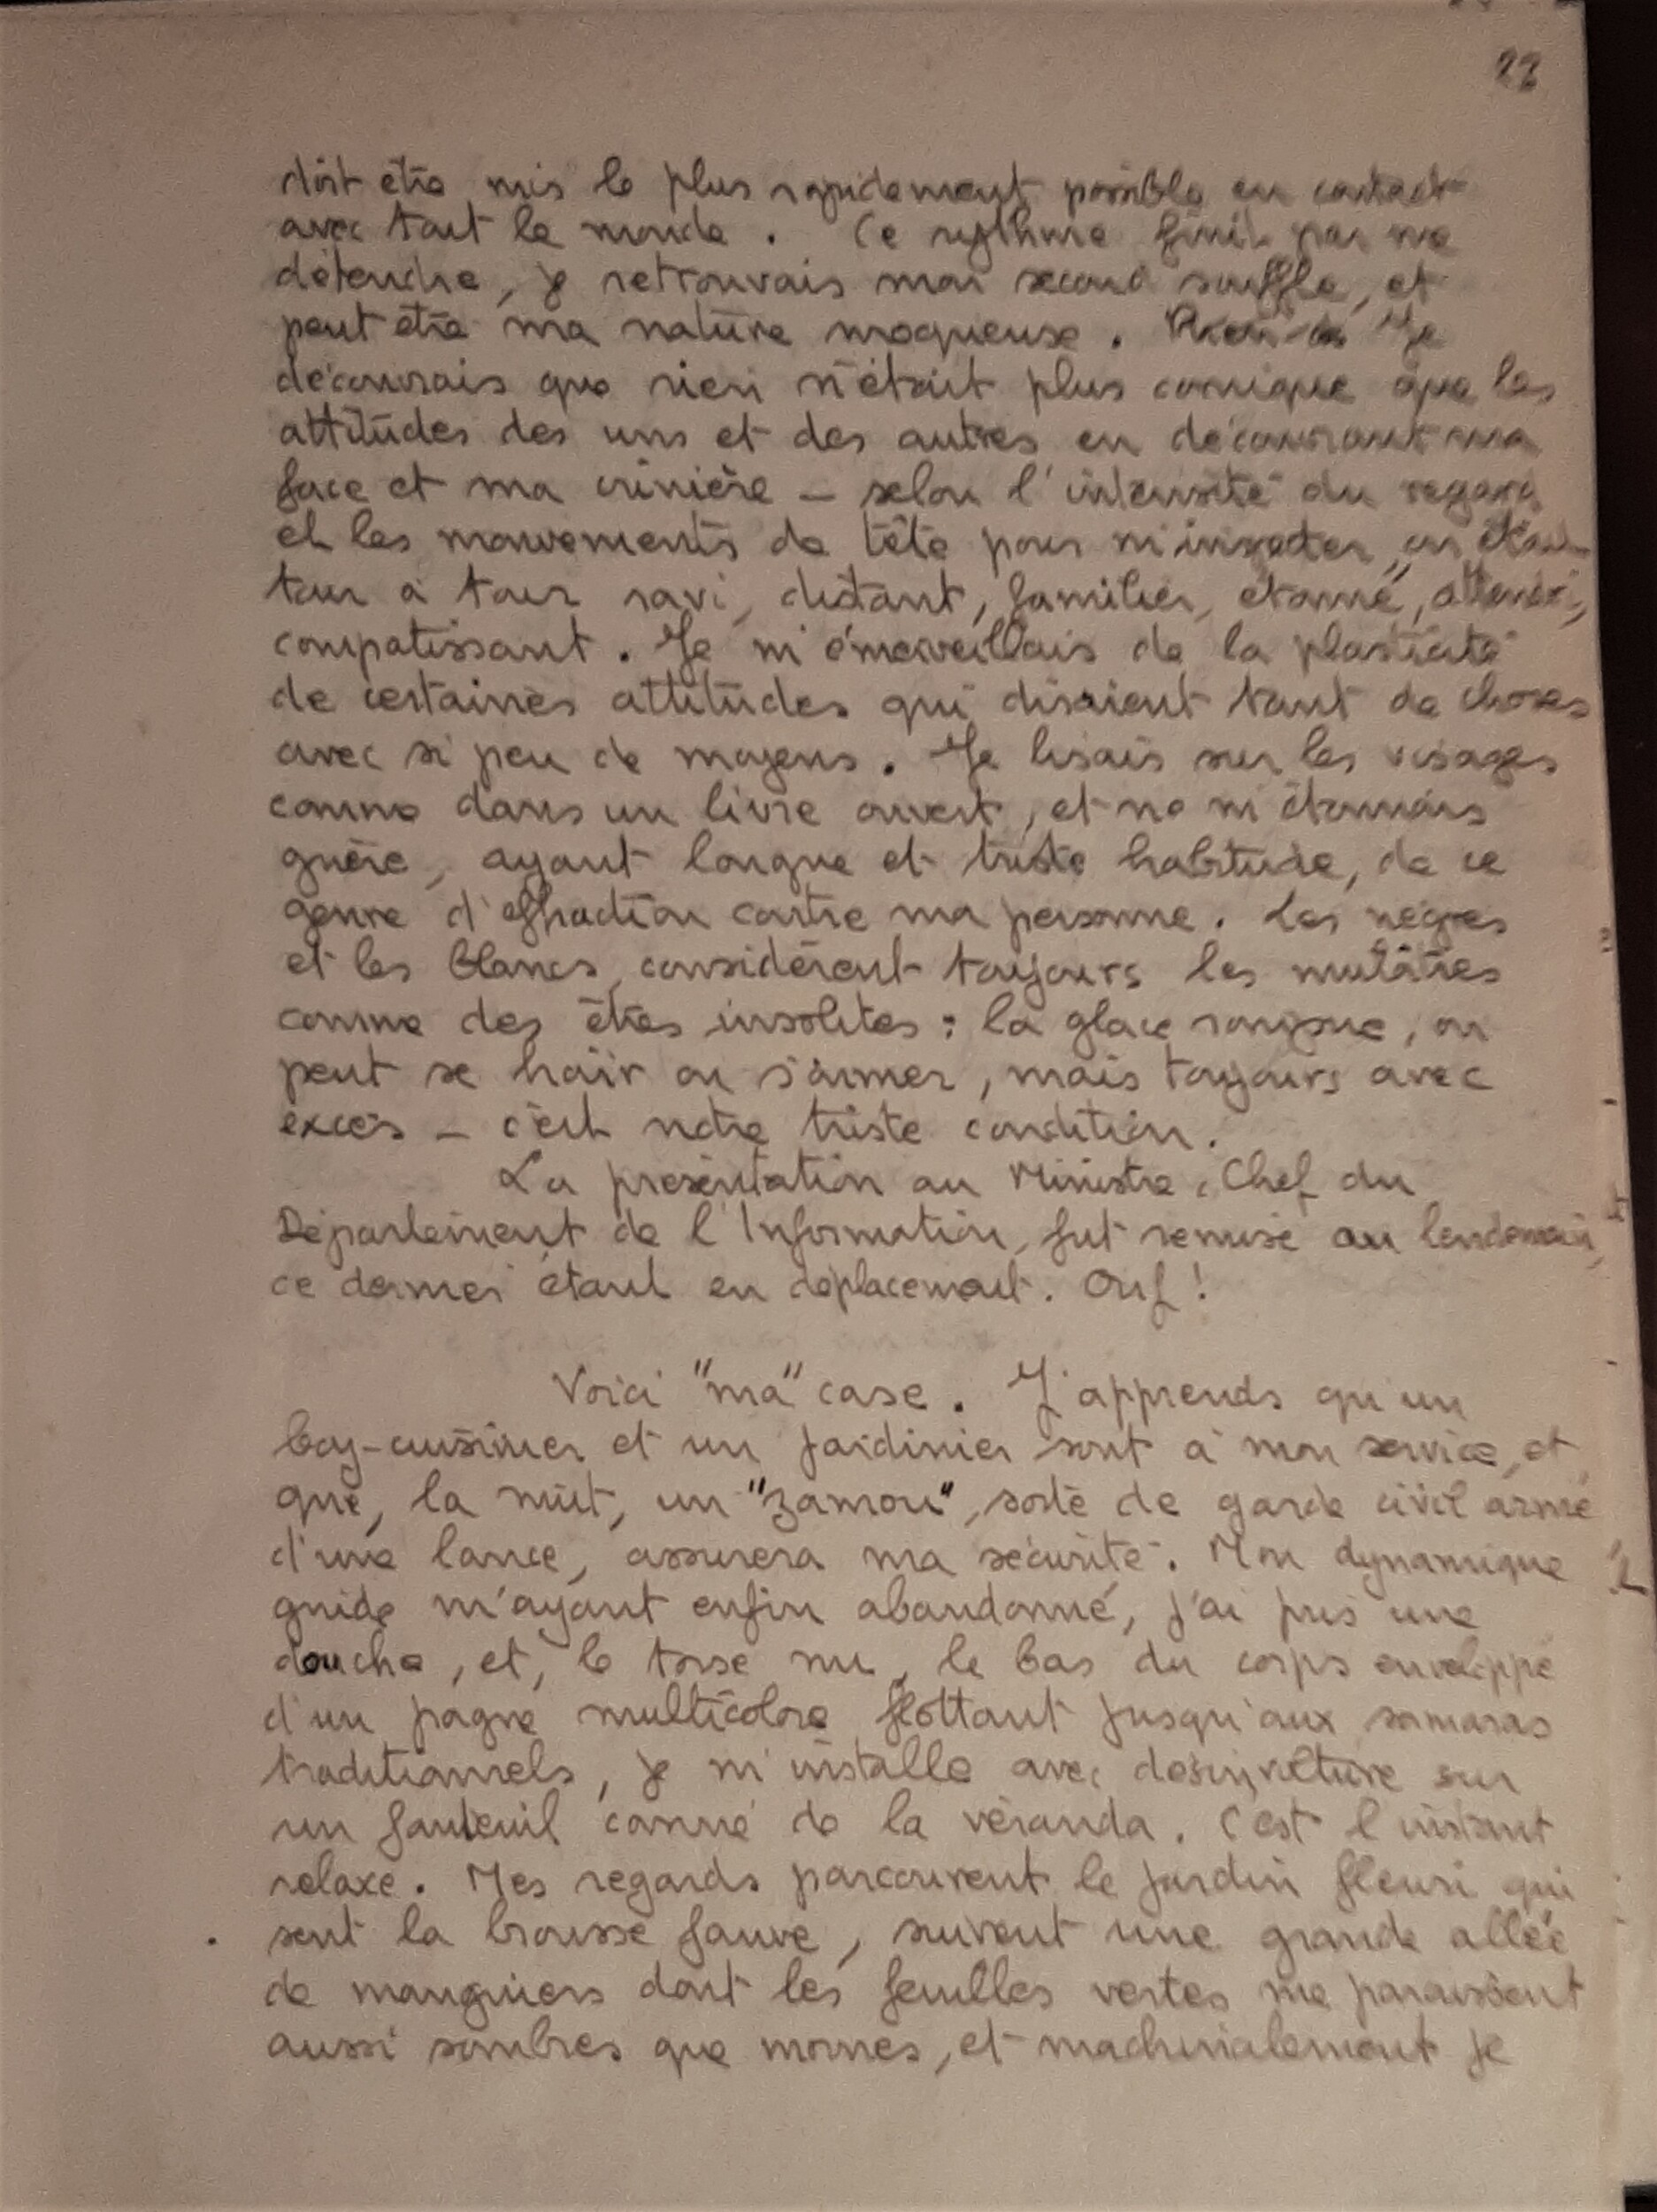 22
doit être mis le plus rapidement possible en contact
avec tout le monde. Ce rythme finit par me
détendre, je retrouvais mon second souffle, et
peut être ma nature moqueuse. Je
découvrais que rien n'était plus comique que les
attitudes des uns et des autres en découvrant ma
face et ma crinière – selon l'intensité du regard
et les mouvements de tête pour m'inspecter, on était
tour à tour ravi, distant, familier, étonné, attendri,
compatissant. Je m'émerveillais de la plasticité
de certaines attitudes qui disaient tant de choses
avec si peu de moyens. Je lisais sur les visages
comme dans un livre ouvert, et ne m'étonnais
guère, ayant longue et triste habitude, de ce
genre d'effraction contre ma personne. Les nègres
et les blancs considèrent toujours les mulâtres
comme des êtres insolites : la glace rompue, on
peut se haïr ou s'aimer, mais toujours avec
excès – c'est notre triste condition.
La présentation au Ministre, Chef du
Département de l'Information, fut remise au lendemain,
ce dernier étant en déplacement. Ouf !
Voici "ma" case. J'apprends qu'un
boy-cuisinier et un jardinier sont à mon service, et
que, la nuit, un "zamou", sorte de garde civil armé
d'une lance, assurera ma sécurité. Mon dynamique
guide m'ayant enfin abandonné, j'ai pris une
douche, et, le torse nu, le bas du corps enveloppé
d'un pagne multicolore flottant jusqu'aux samaras
traditionnels, je m'installe avec desinvolture sur
un fauteuil canné de la véranda. C'est l'instant
relaxe. Mes regards parcourent le jardin fleuri qui
sent la brousse fauve, suivent une grande allée
de manguiers dont les feuilles vertes me paraissent
aussi sombres que mornes, et machinalement je